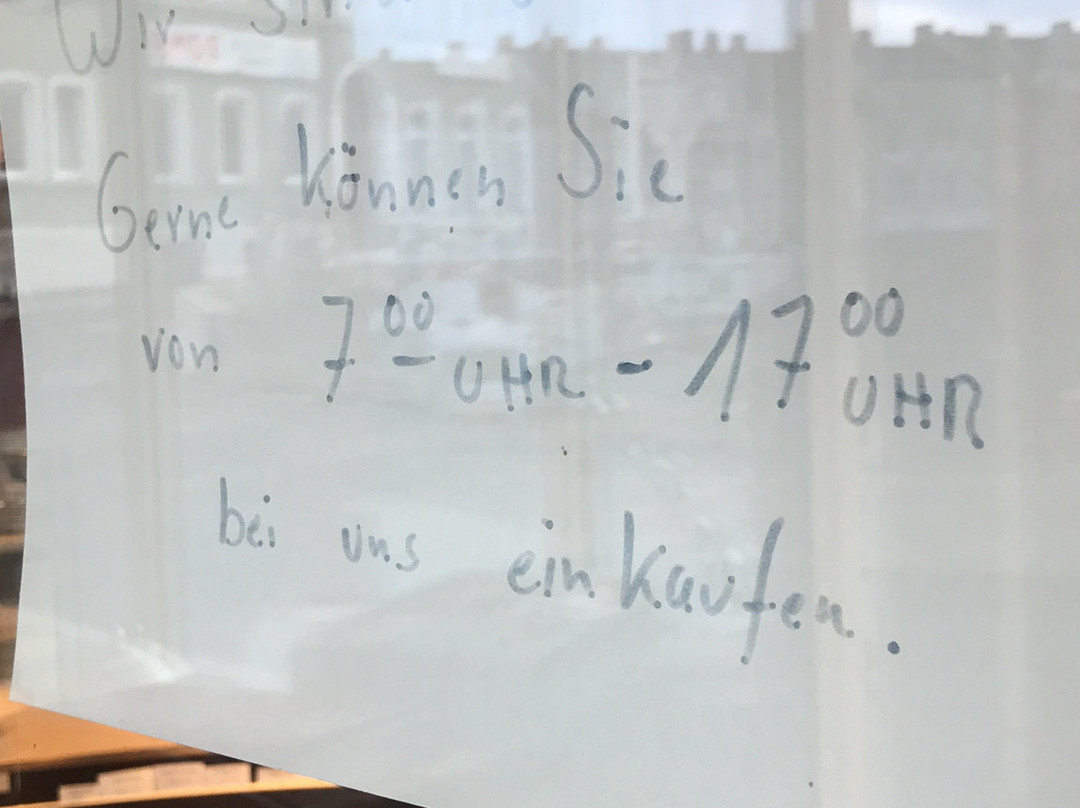 Wir
Gerne können Sie
von 7⁰⁰ UHR - 17⁰⁰ UHR
bei uns einkaufen.